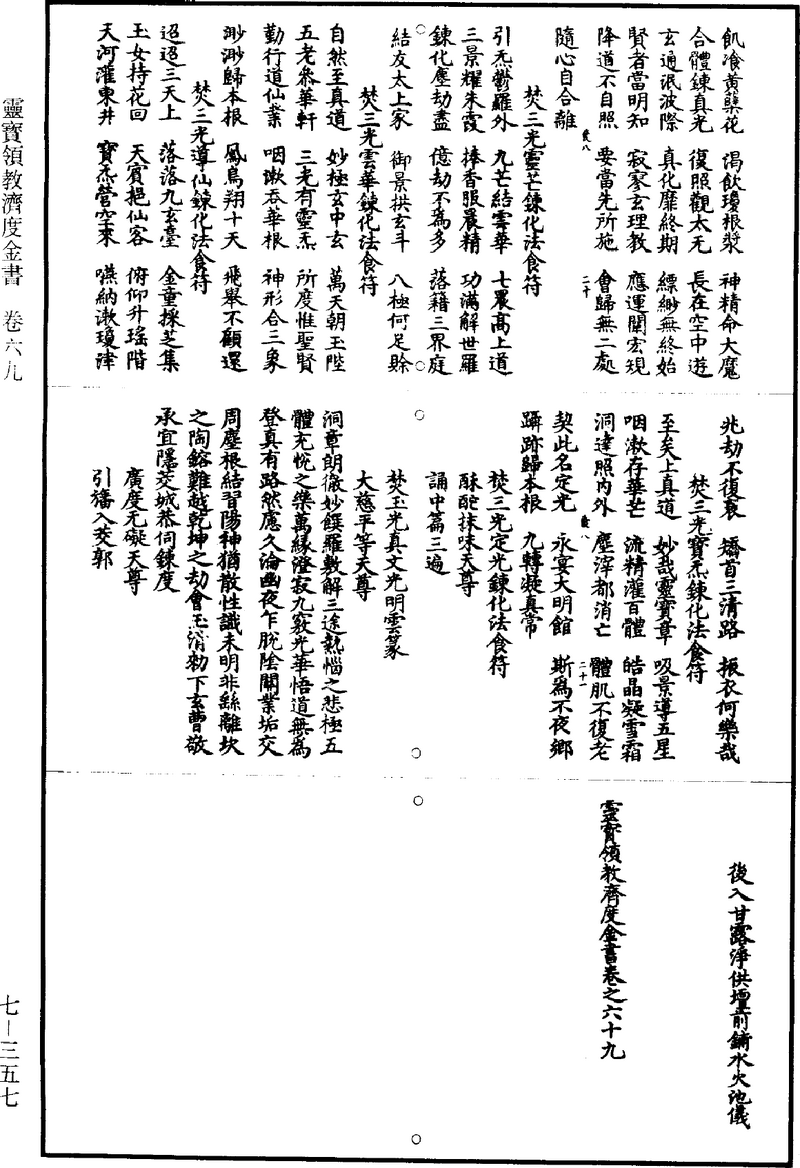 飢飡黄蘗花　渴飲瓊根漿　神精命大魔
合體鍊真光　復照觀太无　長在空中遊
玄通泯波際　真化靡終期　縹緲無終始
賢者當明知　寂寥玄理教　應運闡宏規
降道不自照　要當先所施　會歸無二處
隨心自合離
焚三光靈芒鍊化法食符
引炁鬱羅外　九芒結雲華　七晨高上道
三景耀朱霞　捧香服晨精　功滿解世羅
鍊化塵劫盡　億劫不為多　落籍三界庭
結友太上家　御景拱玄斗　八極何足賒
焚三光雲華鍊化法食符
自然至真道　妙極玄中玄　萬天朝玉陛
五老叅華軒　三光有靈炁　所度惟聖賢
勤行道仙業　咽漱吞華根　神形合三象
渺渺歸本根　鳳鳥翔十天　飛舉不顧還
焚三光導仙鍊化法食符
迢迢三天上　落落九玄臺　金童採芝集
玉女持花回　天賓挹仙客　俯仰升瑤階
天河灌東井　寶炁營空來　嚥納漱瓊津
兆劫不復衰　矯首三清路　振衣何樂哉
焚三光寶炁鍊化法食符
至矣上真道　妙哉靈寶章　吸景導五星
咽漱存華芒　流精灌百體　皓晶凝雪霜
洞達照内外　塵滓都消亡　體肌不復老
契此名定光　永宴大明館　斯為不夜鄉
躡跡歸本根　九轉凝真常
焚三光定光鍊化法食符
酥酡抹味天尊
誦中篇三遍
焚玉光真文光明雲篆
大慈平等天尊
洞章朗徹妙饌羅敷解三途熱惱之悲極五
體充悅之樂萬緣澄寂九竅光華悟道無為
登真有路然慮久淪幽夜乍脫陰關業垢交
周塵根結習陽神猶散性識未明非絲離坎
之陶鎔難越乾坤之劫會玉清勑下玄曹敬
承宜隱交城恭伺鍊度
廣度无礙天尊
引旛入茭郭
後入甘露淨供壇前鏑水火池儀
靈寳領教濟度金書卷之六十九
靈寶領教濟度金書　卷六九
七—三五七